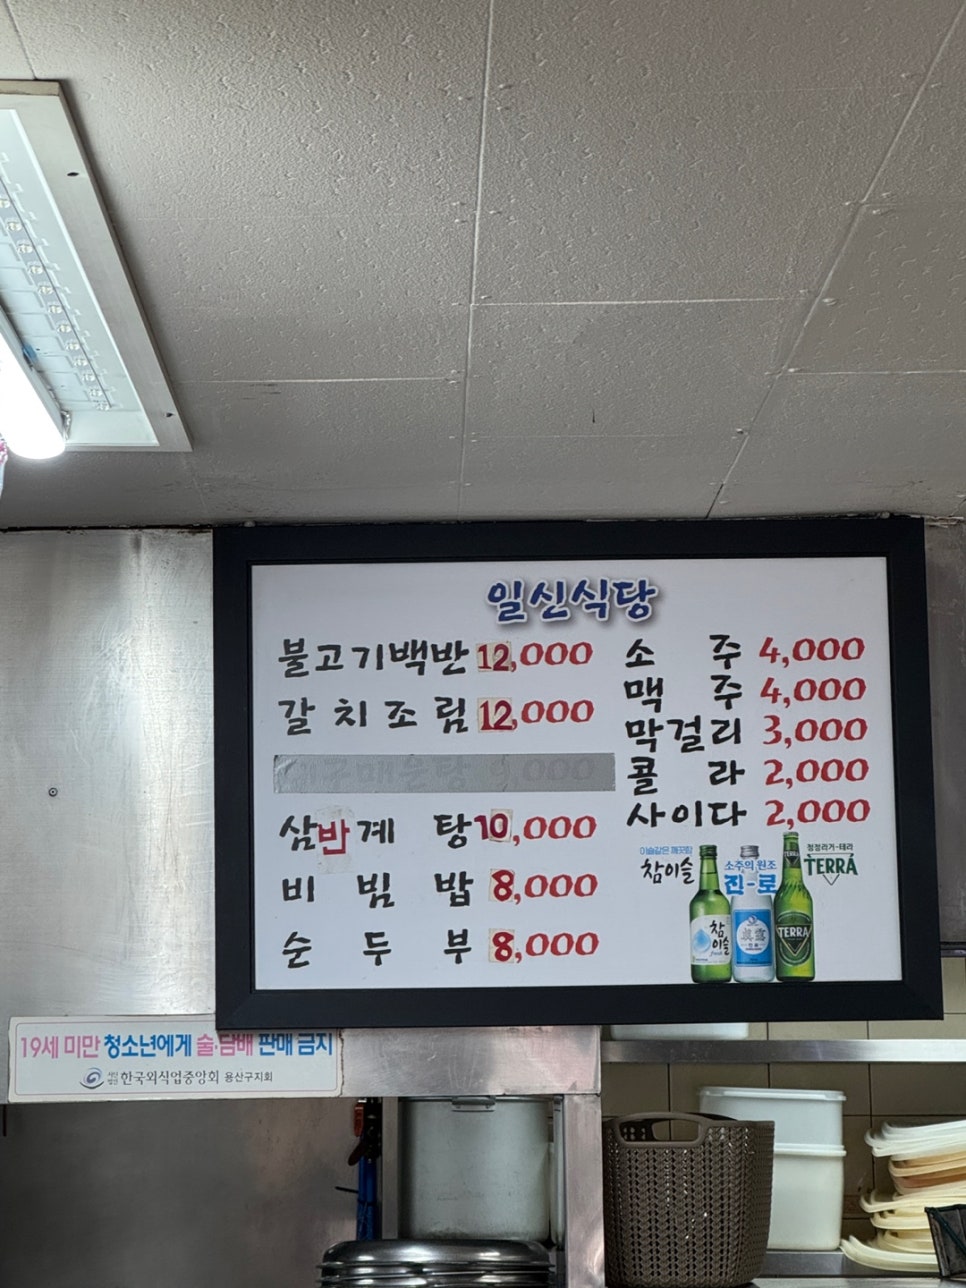 일신식당
불고기백반 12,000
갈치조림 12,000
대구매운탕 9,000
삼반계탕 10,000
비빔밥 8,000
순두부 8,000
소주 4,000
맥주 4,000
막걸리 3,000
콜라 2,000
사이다 2,000
이슬같은 깨끗함
참이슬
소주의 원조
진-로
청정라거-테라
TERRA
참이슬
fresh
眞露
TERRA
TERRA
19세 미만 청소년에게 술·담배 판매 금지
사단법인 한국외식업중앙회 용산구지회